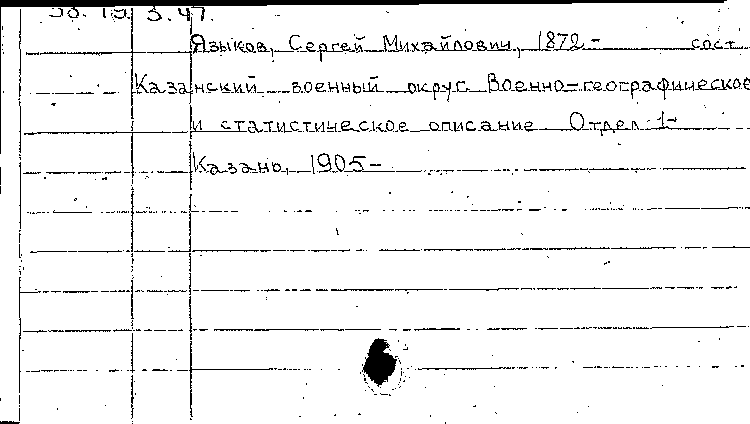 3.47.
Языков, Сергей Михайлович, 1872- сост
Казанский военный округ. Военно-географическое
и статистическое описание Отдел 1-
Казань, 1905-